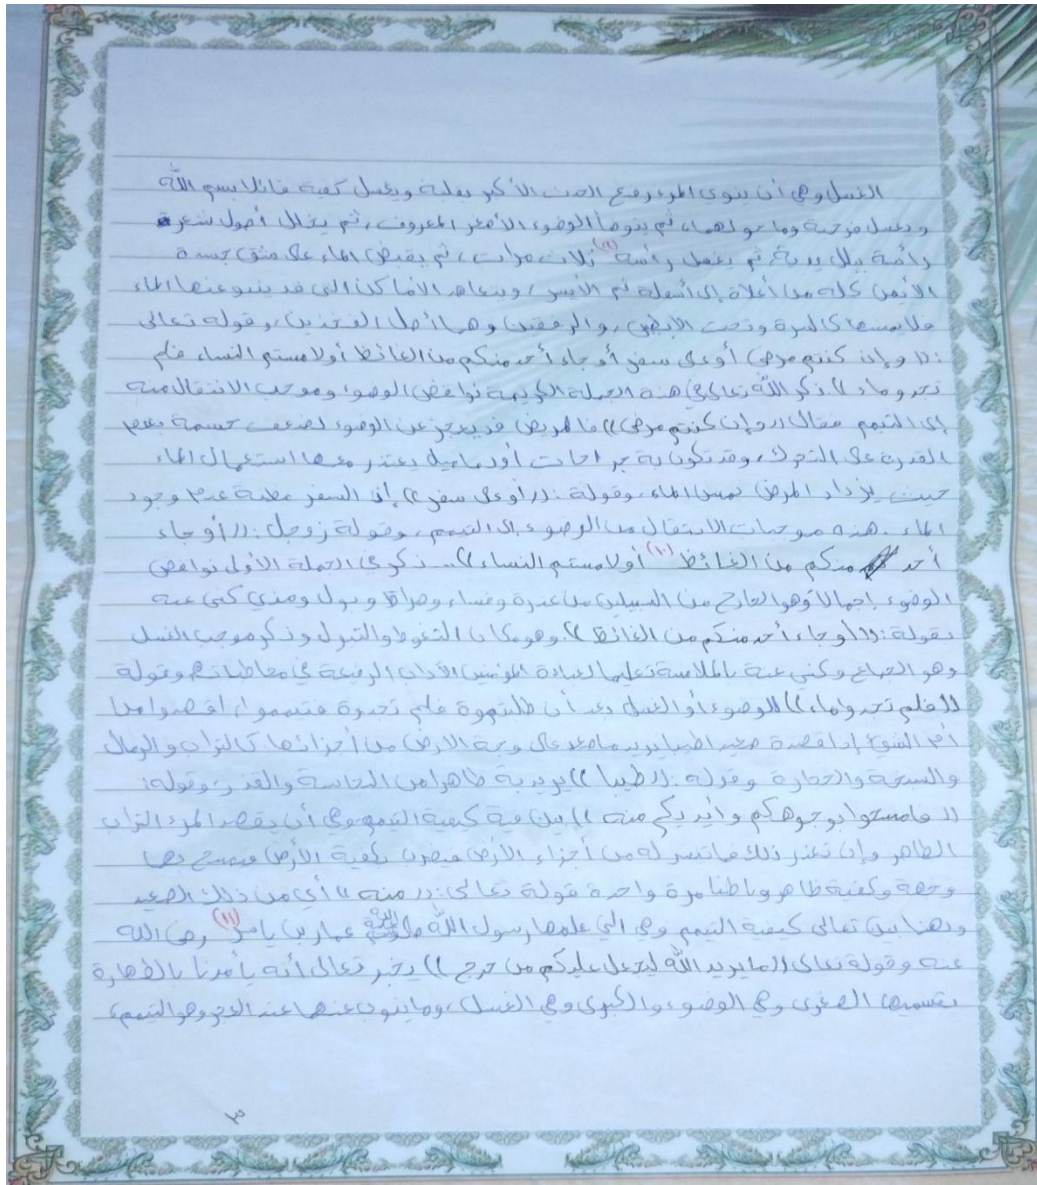 الغسل وهي أن ينوي المرء رفع الحدث الأكبر بقلبة ويغسل كفية قائلا بسم الله
ويغسل فرجية وما حولهما، ثم يتوضأ الوضوء الأصغر المعروف، ثم يخلل أصول شعرة
رأسة ببلل يدية ثم يغسل رأسة (٩) ثلاث مرات، ثم يفيض الماء على شق جسدة
الأيمن كله من أعلاة إلى أسفله ثم الأيسر، ويتعاهد الأماكن التي قد ينبو عنها الماء
فلا يمسها كالسرة وتحت الأبطين، والرفغين وهما أصل الفخذين، وقوله تعالى
:(( وإن كنتم مرضى أو على سفر أو جاء أحد منكم من الغائط أو لامستم النساء فلم
تجدوا ماء )) ذكر الله تعالى في هذه الجملة الكريمة نواقض الوضوء وموجب الانتقال منه
إلى التيمم فقال (( وإن كنتم مرضى )) فالمريض قد يعجز عن الوضوء لضعف جسمة بعدم
القدرة على التحرك، وقد تكون به جراحات أو دماميل يتعذر معها استعمال الماء
حيث يزداد المرض بمس الماء، وقولة :(( أو على سفر )) إذ السفر مظنة عدم وجود
الماء. هذه موجبات الانتقال من الوضوء إلى التيمم، وقولة زوجل :(( أو جاء
أحد منكم من الغائط (١٠) أو لامستم النساء )).. ذكر في الجملة الأولى نواقض
الوضوء إجمالا وهو الخارج من السبيلين من عذرة وفساء وضراط وبول ومذي كنى عنه
بقولة :(( أو جاء أحد منكم من الغائط )) وهو مكان التغوط والتبول وذكر موجب الغسل
وهو الجماع وكنى عنة بالملامسة تعليما لعبادة المؤمنين الآداب الرفيعة في مخاطباتهم وقولة
(( فلم تجدوا ماء )) للوضوء أو الغسل بعد أن طلبتموة فلم تجدوة فتيمموا، اقصدوا من
أم الشيء إذا قصدة صعيدا طيبا يريد ما صعد على وجة الأرض من أجزائها كالتراب والرمال
والسبخة والحجارة وقوله :(( طيبا )) يريد به طاهرا من النجاسة والقذر، وقوله:
(( فامسحوا بوجوهكم وأيديكم منه )) بين فية كيفية التيمم وهي أن يقصد المرء التراب
الطاهر وإن تعذر ذلك فما تيسر له من أجزاء الأرض فيضرب بكفية الأرض فيمسح بهما
وجهة وكفية ظاهر وباطنا مرة واحدة قولة تعالى :(( منه )) أي من ذلك الصعيد
وبهذا بين تعالى كيفية التيمم وهي التي علمها رسول الله صلى الله عليه وسلم عمار بن ياسر (١١) رضى الله
عنه وقولة تعالى (( ما يريد الله ليجعل عليكم من حرج )) يخبر تعالى أنه يأمرنا بالطهارة
بقسميها الصغرى وهي الوضوء والكبرى وهي الغسل، وما ينوب عنهما عند العجز وهو التيمم،
٣